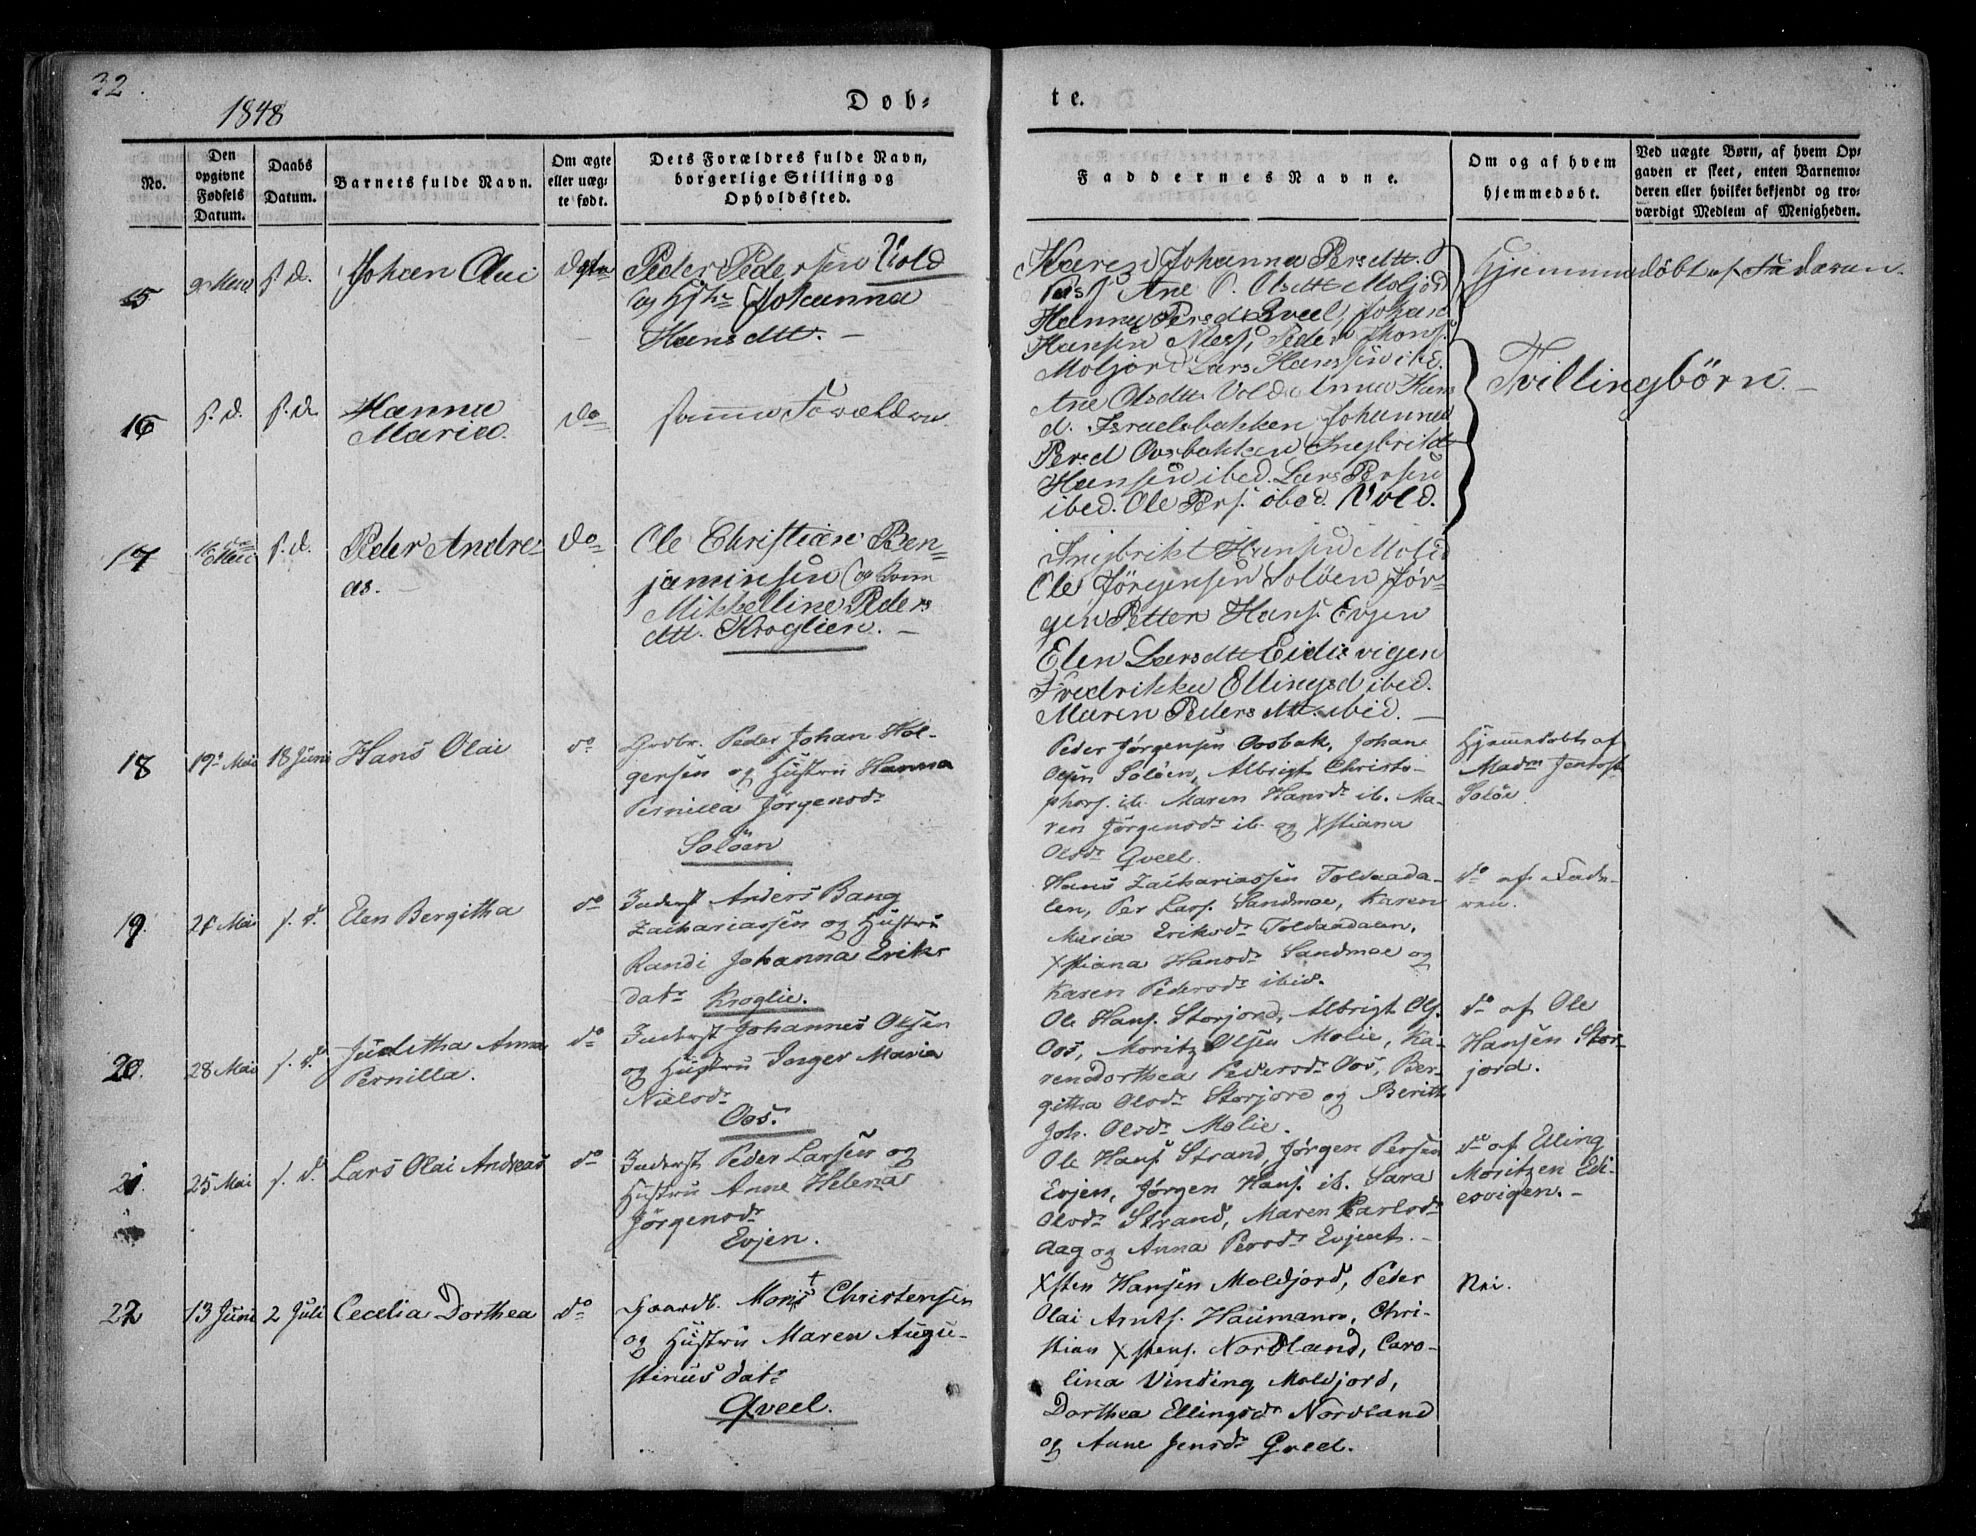 32.
1848
Døb-
te.
No.
Den opgivne Fødsels Datum.
Daabs Datum.
Barnets fulde Navn.
Om ægte eller uæg- te født.
Dets Forældres fulde Navn, borgerlige Stilling og Opholdssted.
Faddernes Navne.
Om og af hvem hjemmedøbt.
Ved uægte Børn, af hvem Op- gaven er skeet, enten Barnemo- deren eller hvilket bekjendt og tro- værdigt Medlem af Menigheden.
15
s. d.
Johan Olai
Peder Pedersen Vold
og Hstr Johanna
Hansdtt. -
Karen Johanna Persdtt.
Ane P. Olsdtt Moljord
Hanna Persd Qveel, Johan
Hansen Næss, Peder
Moljord Lars Hanssen ibd.
Hjemmedøbt af Faderen.
16
s. d.
s. d.
Hanna
Maria.
do
samme Forældre.
Ane Olsdtt. Vold Anna Hans
d. Israelsbakken Johanna
Persd Oosbakken Ingbrikt
Hansen ibed. Lars Persen
ibed. Ole Pers. ibed. Vold.
Tvillingbörn. -
17
s. d.
Peder Andre-
as. -
do
Ole Christian Ben-
jaminsen og Kone
Mikkelline Peders
dtt. Kroglien. -
Ingbrikt Hansen
Ole Jørgensen Soløen Jør-
gen Petter Hans. Evjen
Elen Larsdtt Eidisvigen
Fredrikka Ellingsd ibed.
Maren Pedersdtt. ibed. -
18
19de Mai
18 Juni
Hans Olai
do
Grdbr. Peder Johan Hol-
gersen og Hustru Hanna
Pernilla Jørgensdr
Soløen
Peder Jørgensen Oosbak, Johan
Olsen Soløen, Albrigt Christo-
phers. ib. Maren Hansdr ib. Ma-
ren Jørgensdr ib. og Xstiana
Olsdr Qveel.
Hjemmedøbt af
Madm
Soløe
19.
21 Mai
s. d.
Elen Bergitha
do
Inderst Anders Bang
Zachariassen og Hustru
Randi Johanna Eriks
datr Kroglie.
Hans Zachariassen Toldaada-
len, Per Lars. Sandmoe, Karen
Maria Eriksdr Toldaadalen,
Xstiana Hansdr Sandmoe og
Karen Pedersdr ibid.
do af Fade-
ren.
20.
28 Mai
s. d.
Juditha Anna
Pernilla.
do
Inderst Johannes Olsen
og Hustru Inger Maria
Nielsdr
Oos.
Ole Hans. Storjord, Albrigt Ols.
Oos, Moritz Olsen Molie, Ka-
ren Dorthea Pedersdr Oos, Ber-
githa Olsdr Storjord og Berith
Joh. Olsdr Molie.
do af Ole
Hansen Stor-
jord.
21.
25 Mai
s. d.
Lars Olai Andreas
do
Inderst Peder Larsen og
Hustru Anne Helena
Jørgensdr
Evjen.
Ole Hans Strand, Jørgen Persen
Evjen, Jørgen Hans. ib. Sara
Olsdr Strand, Maren Carlsdr
Aag og Anna Persdr Evjen. -
do af Elling
Moritzen Edi-
esvigen. -
22
13 Juni
2 Juli
Cecelia Dorthea
do
Gaardb. Christensen
og Hustru Maren Augu-
stinusdatr
Qveel.
Xsten Hansen Moldjord, Peder
Olai Arnts. Haumann, Chri-
stian Xstens. Nordland, Caro-
lina Vinding Moldjord,
Dorthea Ellingsdr Nordland
og Anne Jensdr Qveel.
Nei.